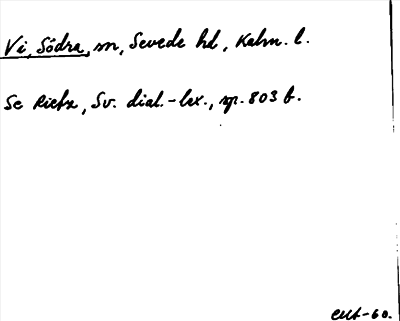 Vi, Södra, sn, Sevede hd, Kalm. l.
Se Rietz, Sv. dial.-lex., sp. 803 b.